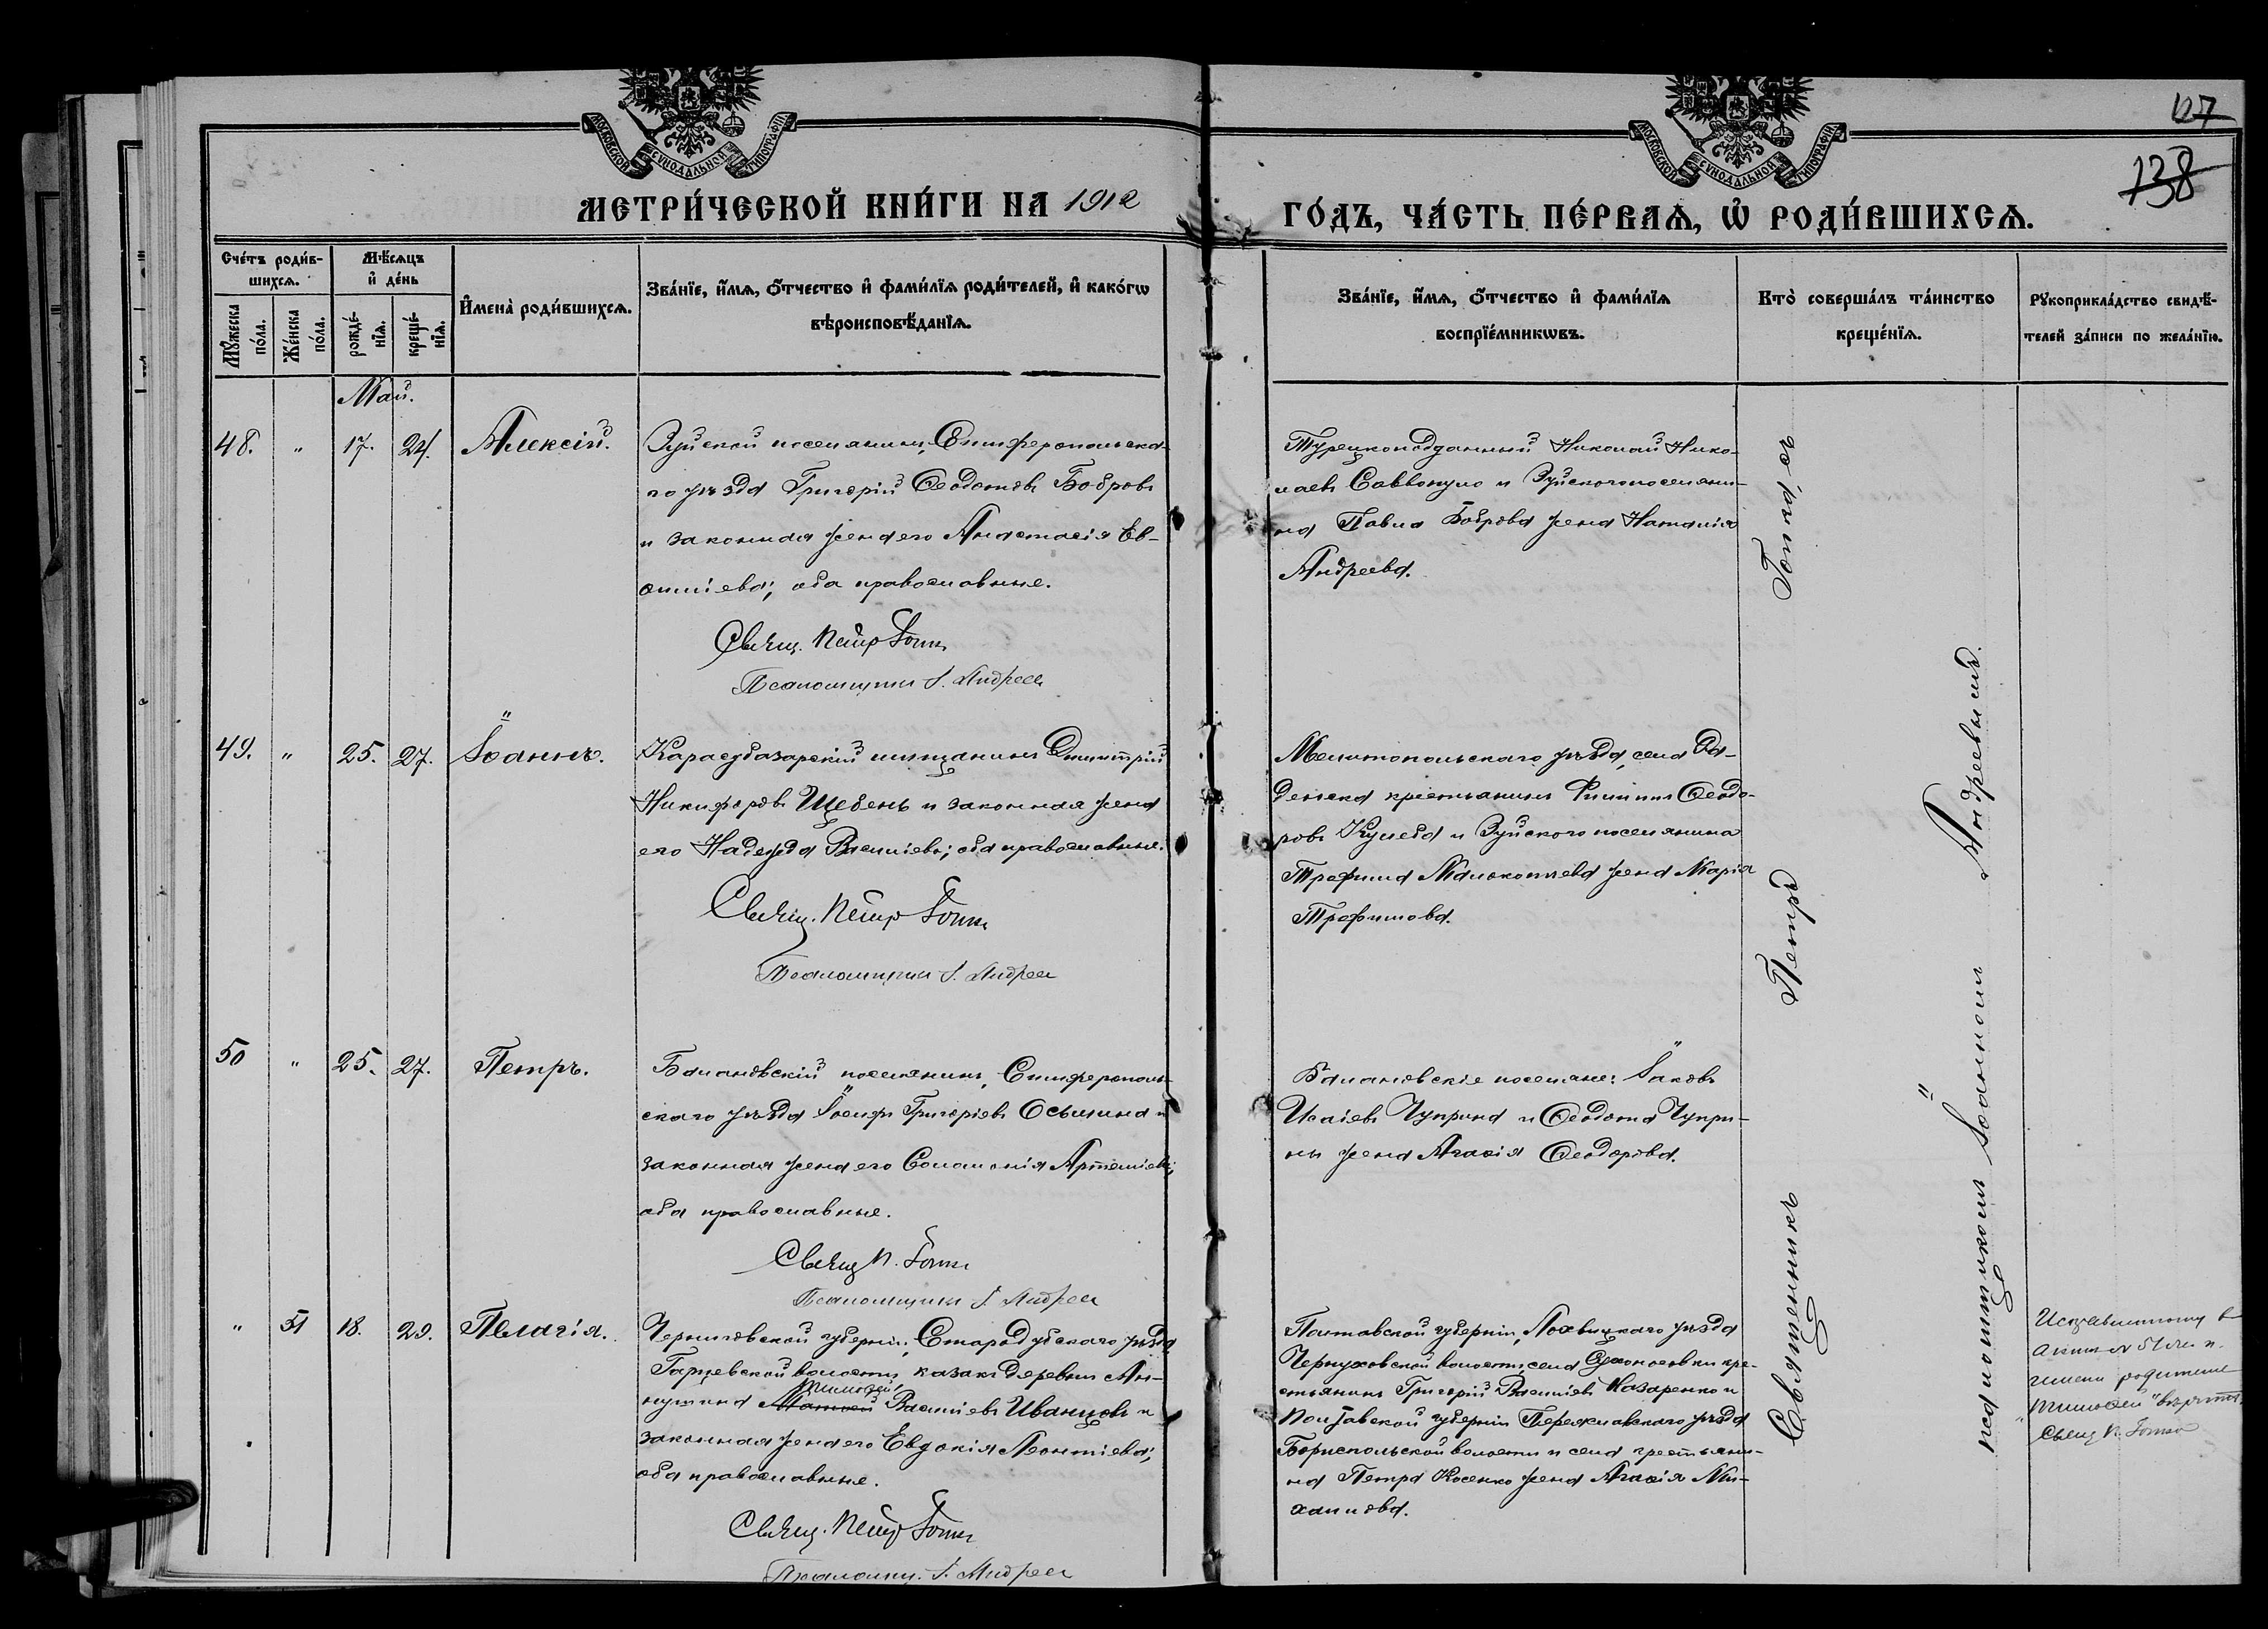 127
138
МОСКОВСКОЙ СѴНОДАЛЬНОЙ ТИПОГРАФІИ
МОСКОВСКОЙ СѴНОДАЛЬНОЙ ТИПОГРАФІИ
МЕТРИ́ЧЕСКОЙ КНИ́ГИ НА 1912
ГО́ДЪ, ЧА́СТЬ ПЕ́РВАѦ, Ѡ҆ РОДИ́ВШИХСѦ.
Сче́тъ роди́в-
шихсѧ.
Мꙋ́жеска
по́ла.
Же́нска
по́ла.
Мѣ́сѧцъ
и҆ де́нь
рожде́-
нїѧ.
креще́-
нїѧ.
И҆мена̀ роди́вшихсѧ.
Зва́нїе, и҆́мѧ, ѻ҆́тчество и҆ фами́лїѧ роди́телей, и҆ како́гѡ
вѣроисповѣ́данїѧ.
Зва́нїе, и҆́мѧ, ѻ҆́тчество и҆ фами́лїѧ
воспрїе́мникѡвъ.
Кто̀ соверша́лъ та́инство
креще́нїѧ.
Рꙋкоприкла́дство свидѣ́-
телей за́писи по жела́нїю.
Май.
48. " 17. 24. Алексій.
Зуйской поселянинъ, Симферопольска-
го уѣзда Григорій Ѳеодотовъ Бобровъ
и законная жена его Анастасія Ев-
ѳиміева; оба православные.
Священ. Петр Гопка
Псаломщикъ І. Андреев
Турецкоподданный Николай Нико-
лаевъ Саввопуло и Зуйского поселяни-
на Павла Боброва жена Наталія
Андреева.
49. " 25. 27. Іоаннъ.
Карасубазарскій мѣщанинъ Димитрій
Никифоровъ Щебень и законная жена
его Надежда Васильева; оба православные.
Священ. Петр Гопка
Псаломщикъ І. Андреев
Мелитопольскаго уѣзда, села
крестьянинъ Филиппъ Ѳеодо-
ровъ и Зуйского поселянина
Трофима жена Марія
Трофимова.
50 " 25. 27. Петръ.
Балановскій поселянинъ, Симферополь-
скаго уѣзда Іосифъ Григорьевъ Осьмина и
законная жена его Соломонія Артеміева;
оба православные.
Священ П. Гопка
Псаломщикъ І. Андреев
Балановскіе поселяне: Іаковъ
Исаіевъ Чуприна и Ѳеодота Чупри-
ны жена Агаѳія Ѳеодорова.
" 51 18. 29. Пелагія.
Черниговской губерніи, Стародубскаго уѣзда,
волости, казакъ деревни Ан-
Тимофей
Матвей Васильевъ Иванцовъ и
законная жена его Евдокія Леонтіева;
оба православные.
Священ. Петр Гопка
Псаломщ. І. Андреев
Полтавской губерніи, Лохвицкаго уѣзда
Чернухской волости, села Сухоносовки кре-
стьянинъ Григорій Васильевъ Назаренко и
Полтавской губерніи Переяславскаго уѣзда
Бориспольской волости и села крестьяни-
на Петра Косенко жена Агаѳія Ми-
хаилова.
Священникъ Петръ Гопка, съ
псаломщикомъ Іоанномъ Андреевымъ.
Исправленному въ
актѣ № 51
имени родителя
"Тимофей" вѣрить.
Свящ П. Гопка